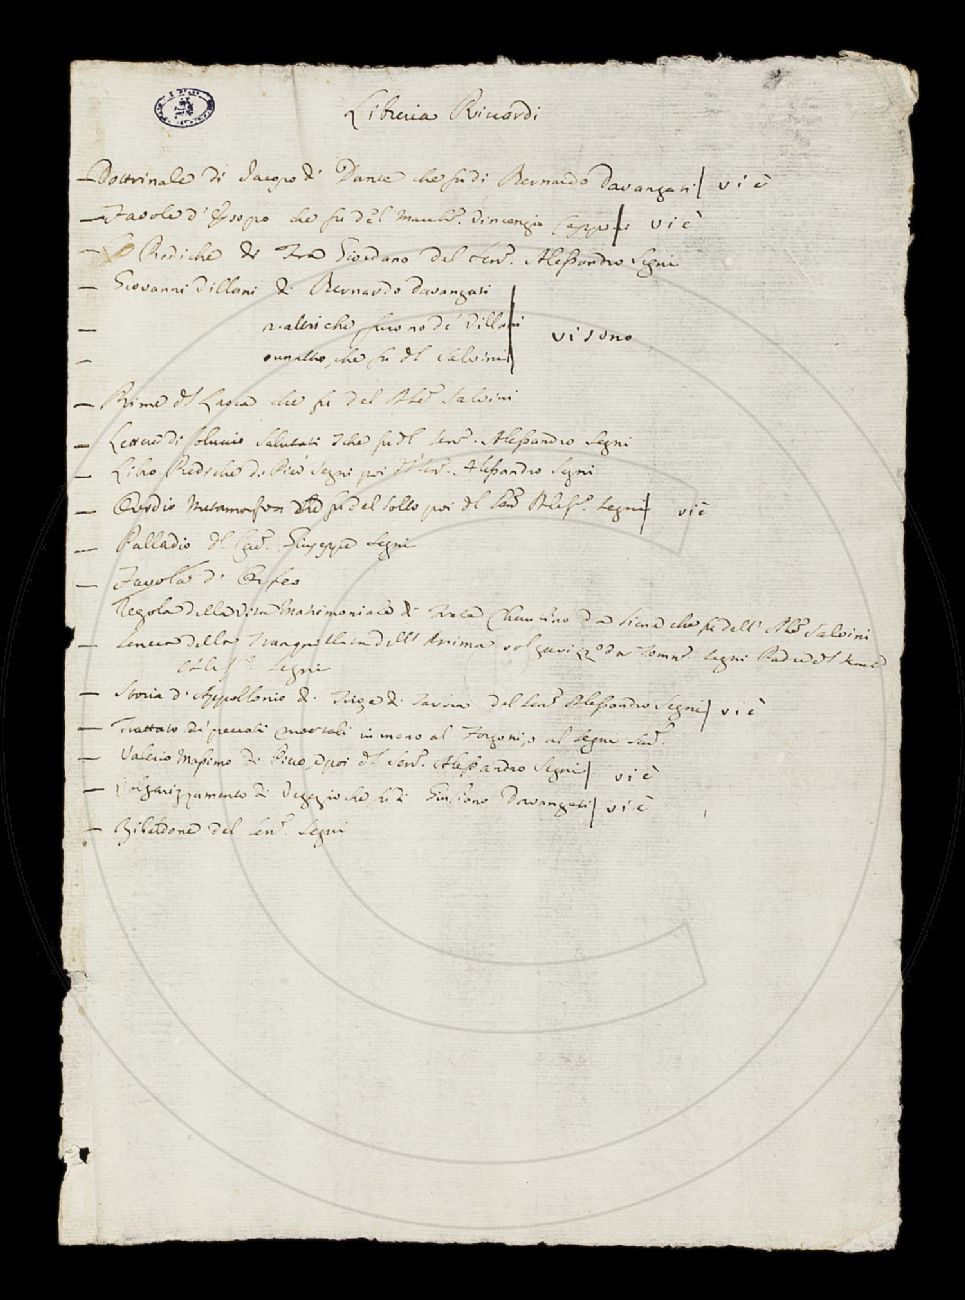 Libreria Riccardi
— Dottrinale di Jacopo di Dante che fu di Bernardo Davanzati | vi è
— Favole d'Esopo che fu del March. Vincenzio Capponi | vi è
— Prediche di Fra Giordano del Sen. Alessandro Segni
— Giovanni Villani di Bernardo Davanzati
— altri che furono de' Villani | vi sono
— un altro, che fu del Salvini
— Rime del che fu del Ab.e Salvini
— Lettere di Coluccio Salutati che fu del Sen. Alessandro Segni
— Libro Prediche di Pier Segni poi del Sen. Alessandro Segni
— Ovidio Metamorfosi fu del Sollo poi del Sen. Aless. Segni | vi è
— Palladio del Cav. Giuseppe Segni
— Favola d'Orfeo
Regola della vita Matrimoniale di Frate Cherubino da Siena che fu dell' Ab.e Salvini
— Seneca della Tranquillità dell' Anima volgarizz.o da Tomm. Segni Padre del
Aless. Segni
— Storia d'Appollonio di Tiro di Tarsia del Sen. Alessandro Segni | vi è
— Trattato de' peccati mortali in mano al o al Segni Sen.
— Valerio Massimo di Piero, e poi del Sen. Alessandro Segni | vi è
— Volgarizzamento di Vegezio che fu di Giuliano Davanzati | vi è
— Zibaldone del Sen. Segni